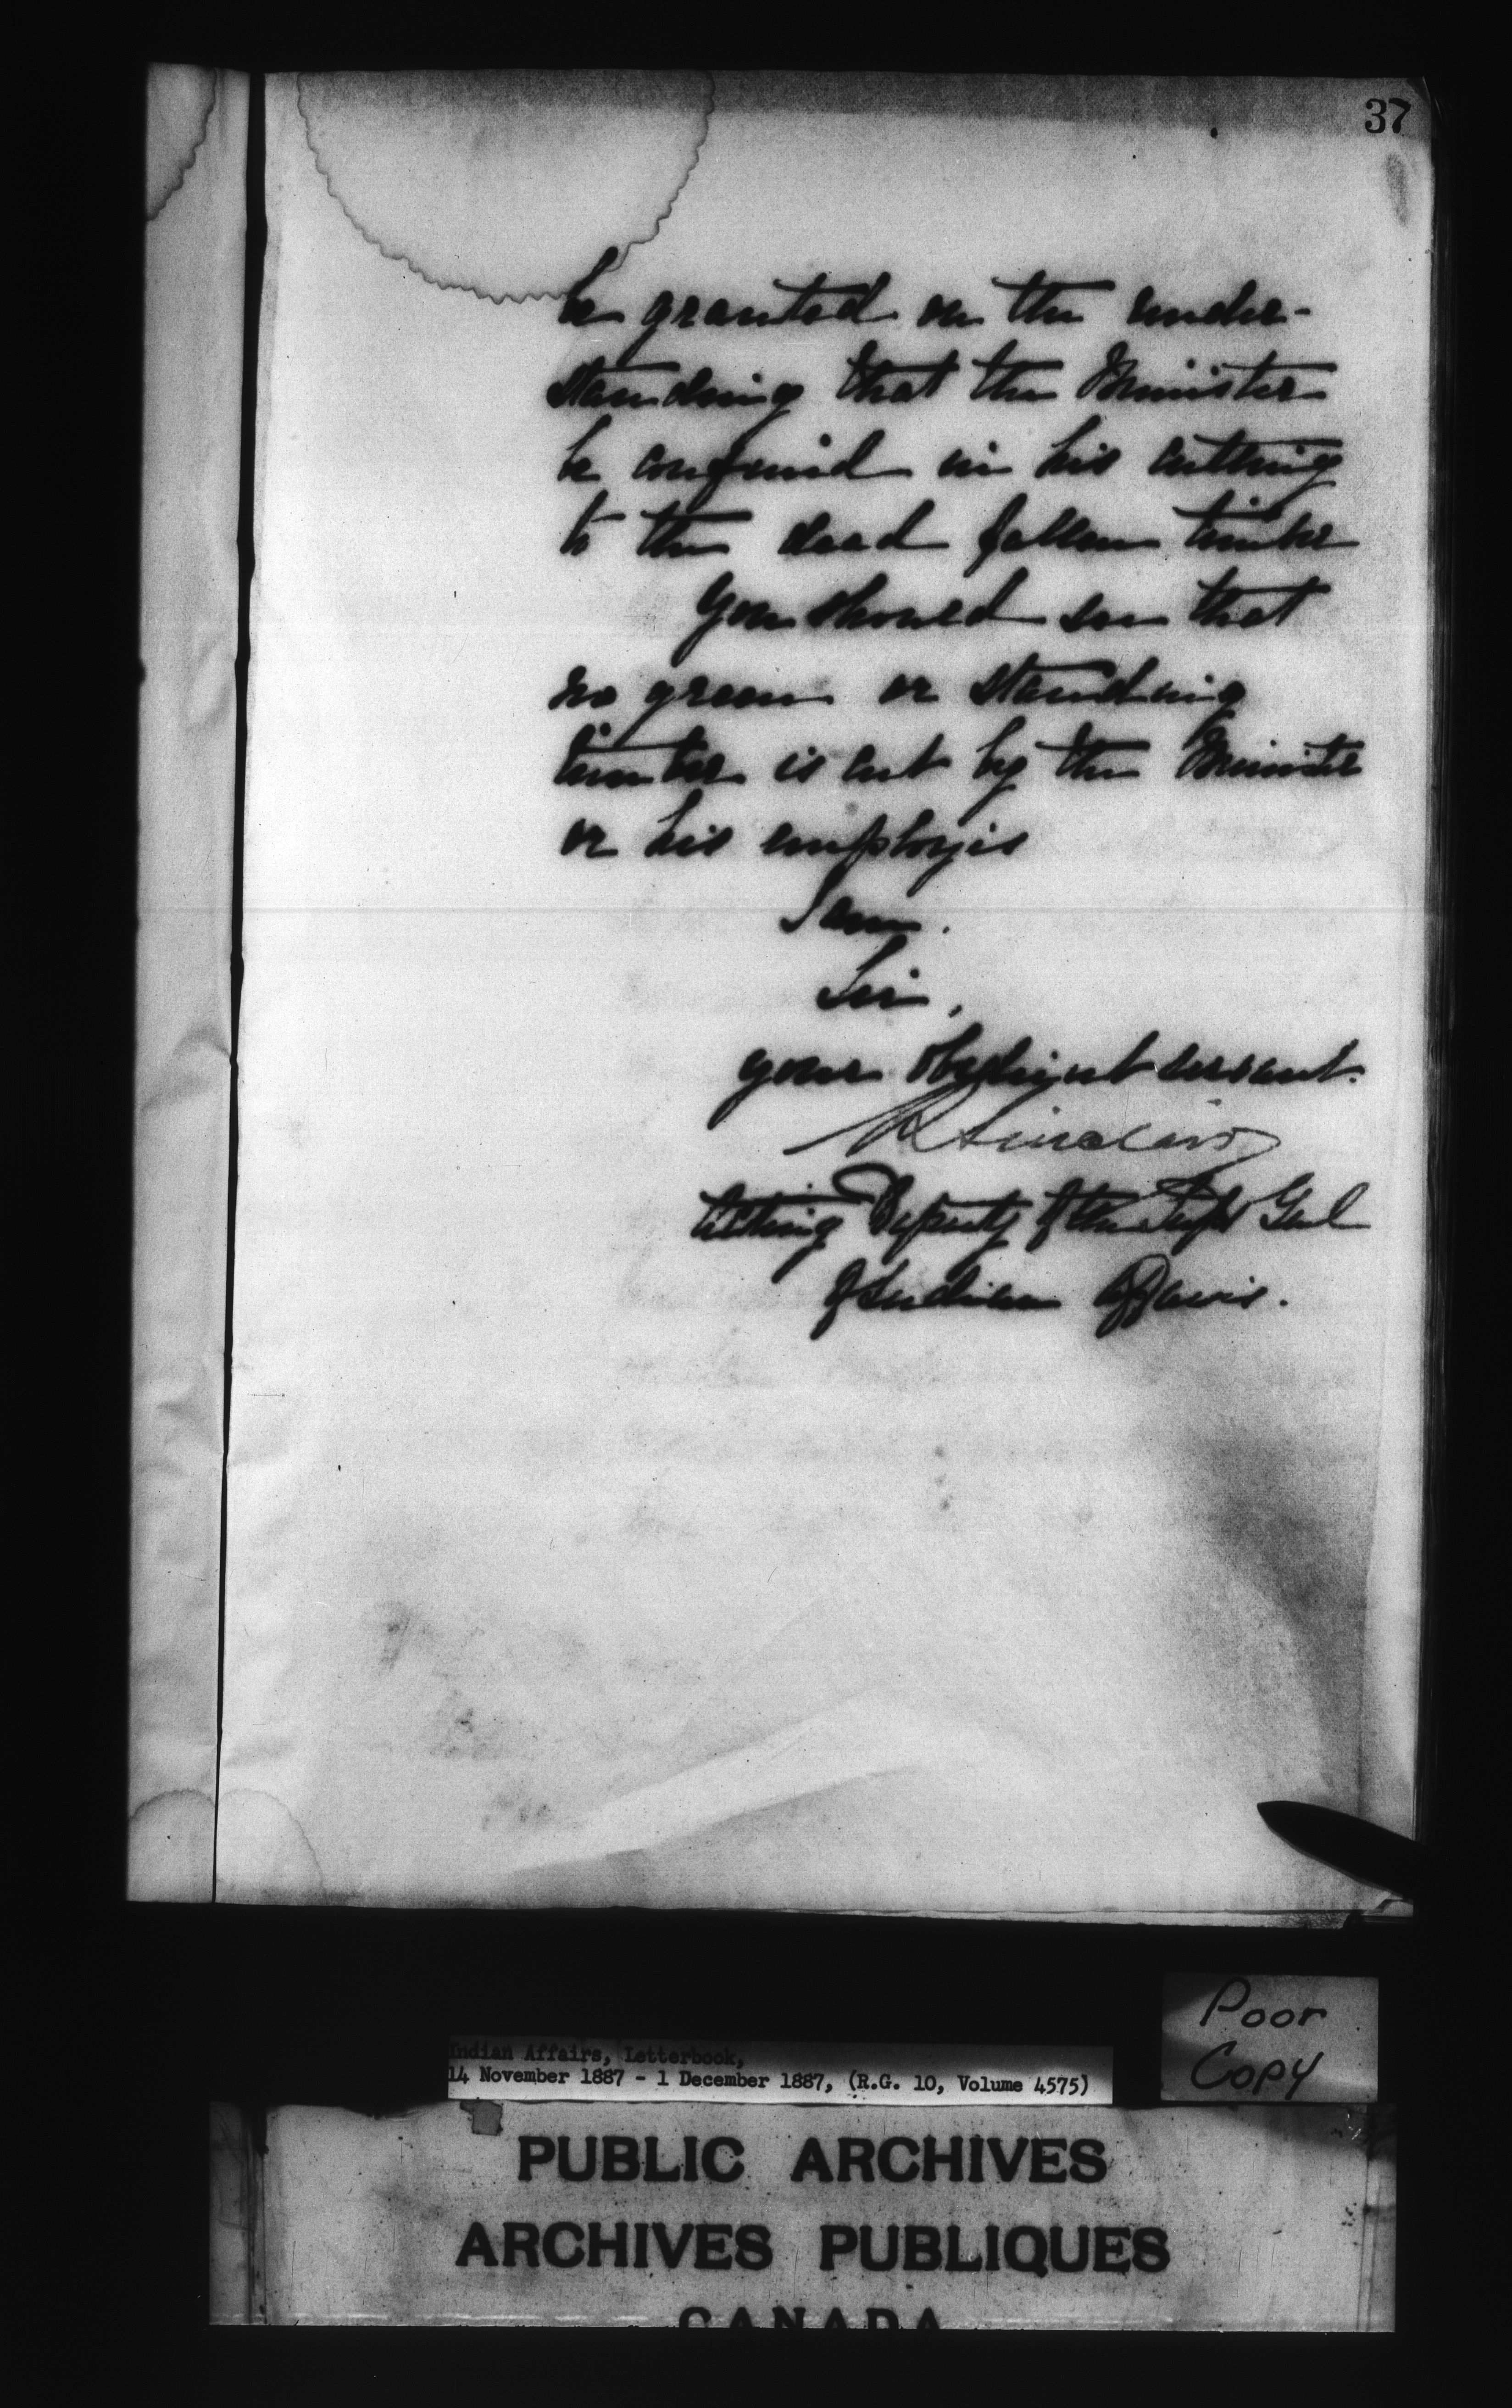 37
be granted on the under-
standing that the Minister
be confined in his cutting
to the dead fallen timber
You should see that
no green or standing
timber is cut by the Minister
or his employés
I am.
Sir,
your obedient servant.
R Sinclair
Acting Deputy of the Supt Genl
of Indian Affairs.
Poor
Copy
Indian Affairs, Letterbook,
14 November 1887 - 1 December 1887, (R.G. 10, Volume 4575)
PUBLIC ARCHIVES
ARCHIVES PUBLIQUES
CANADA